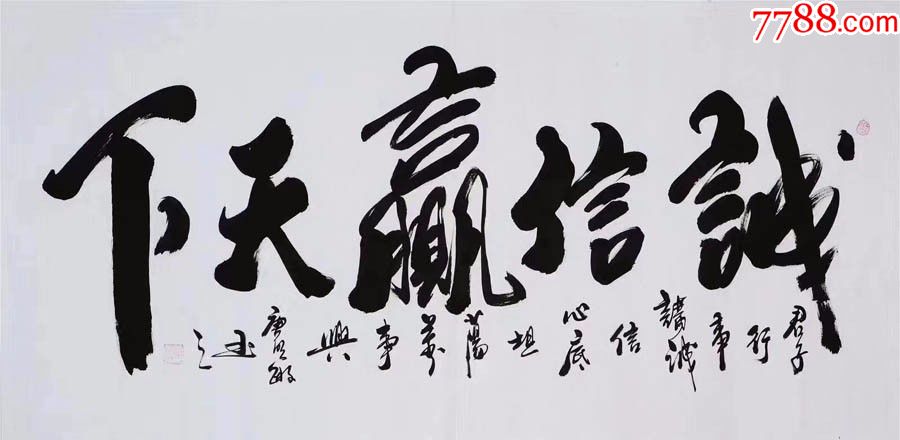 7788.com
誠信贏天下
君子行事講誠信心底坦蕩萬事興
唐